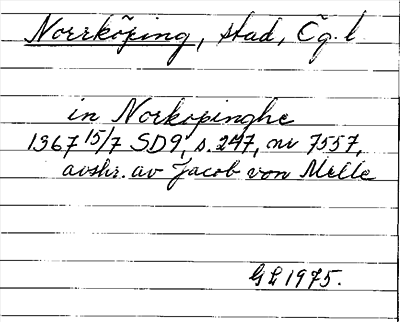 Norrköping, stad, Ög. l
in Norkopinghe
1367 15/7 SD9, s. 247, nr 7557,
avskr. av Jacob von Melle
GL 1975.